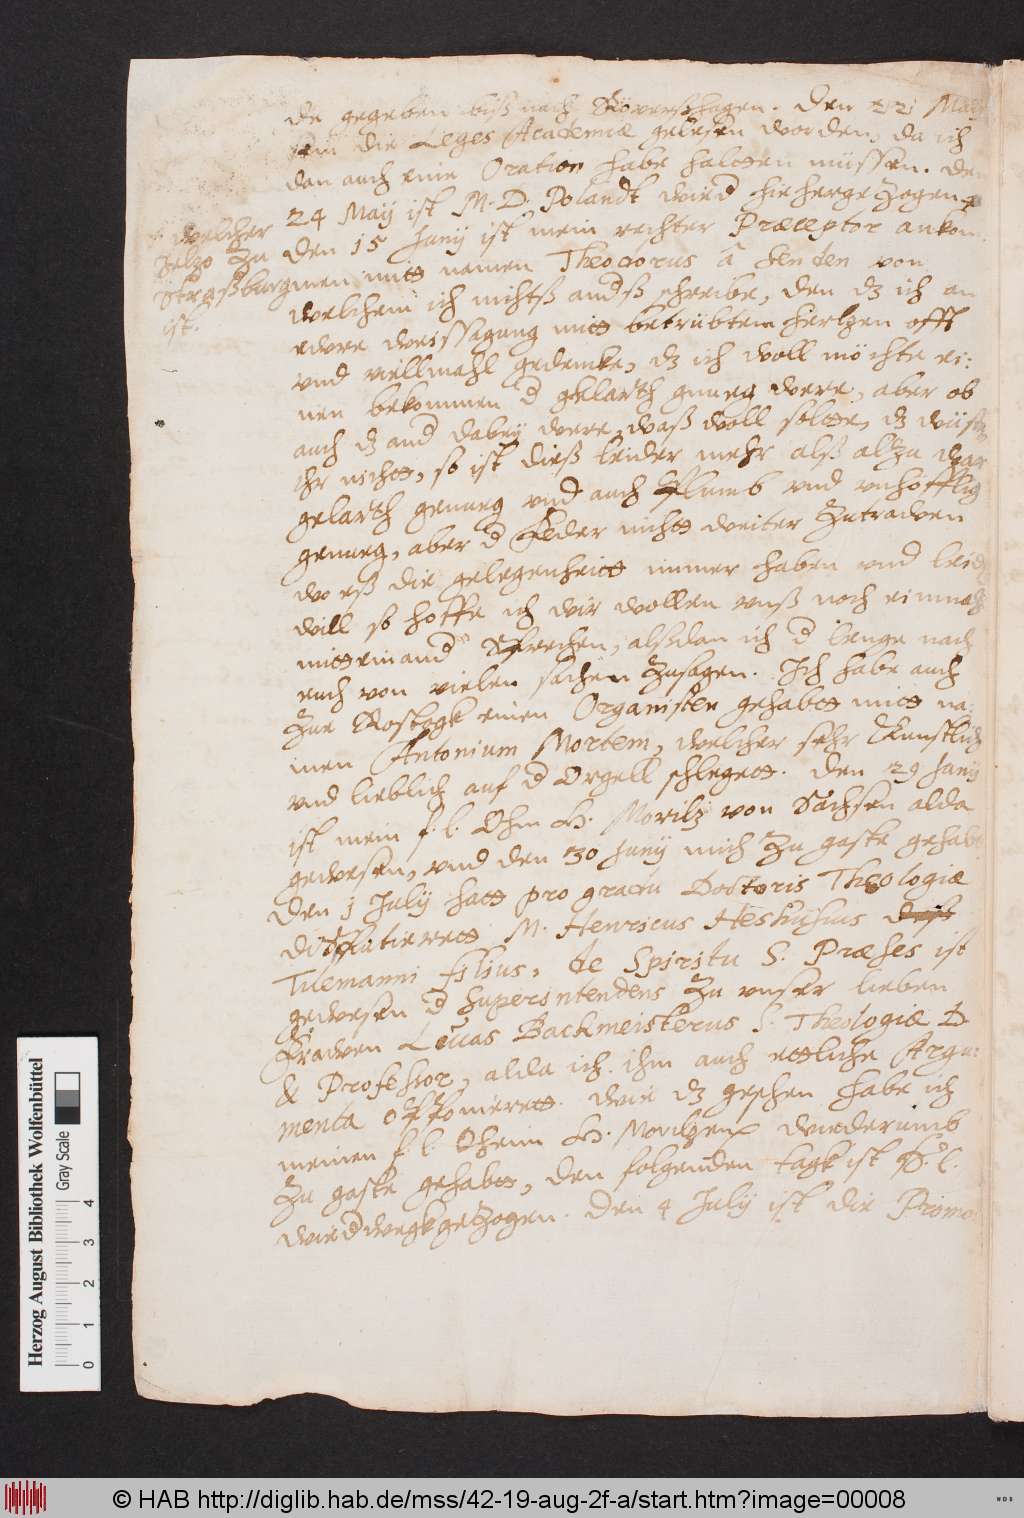 de gegeben biß nach Rövershagen. Den 22 Maij
sein die Leges Academiæ gelesen worden, da ich
dan auch eine Oration habe haltten müssen. Den
24 Maij ist M. D. Polandt wied hiehergezogen
welcher
Jetzo zu
Straßburg
ist.
den 15 Junij ist mein rechter Præceptor ankom
men mitt namen Theodorus â Fenden von
welchem ich nichtß andß schreibe, den dz ich an
ewre weissagung mitt betrübtem hertzen offt
vnd viellmahl gedencke, dz ich woll möchte ei:
nen bekommen d gelarth gnueg were, aber ob
auch dz and dabey were, waß woll soltte, dz wüst
Ihr nichtt, so ist dieß leider mehr alß altzu war
gelarth genueg vnd auch plumb vnd vnhöfflig
genueg, aber d Feder nichtt weiter zutrawen
wo eß die gelegenheitt immer haben vnd leid
will so hoffe ich wir wollen vnß noch einmahl
mitteinand sprechen, alsdan ich d lenge nach
euch von vielen sachen zusagen. Ich habe auch
zue Rostogk einen Organisten gehabtt mitt na:
men Antonium Mortem, welcher sehr kunstlich
vnd lieblich auf d Orgell schlegett. Den 29 Junij
ist mein f. l. Ohm H. Moritz von Sachsen alda
gewesen, vnd den 30 Junij mich zu gaste gehabt
Den 1 Julij hatt pro gradu Doctoris Theologiæ
disputierett M. Henricus Heshusius
Tilemanni filius, de Spiritu S. Præses ist
gewesen d Superintendens zu vnser lieben
Frawen Lucas Backmeisterus S. Theologiæ D.
& Professor, alda ich ihm auch ettliche Argu:
menta opponierett. wie dz geschen habe ich
meinen f. l. Oheim H. Moritzen wiederumb
zu gaste gehabtt, den folgenden tagk ist S. l.
wied wegkgetzogen. Den 4 Julij ist die Promo
Herzog August Bibliothek Wolfenbüttel
Gray Scale
0 1 2 3 4
© HAB http://diglib.hab.de/mss/42-19-aug-2f-a/start.htm?image=00008